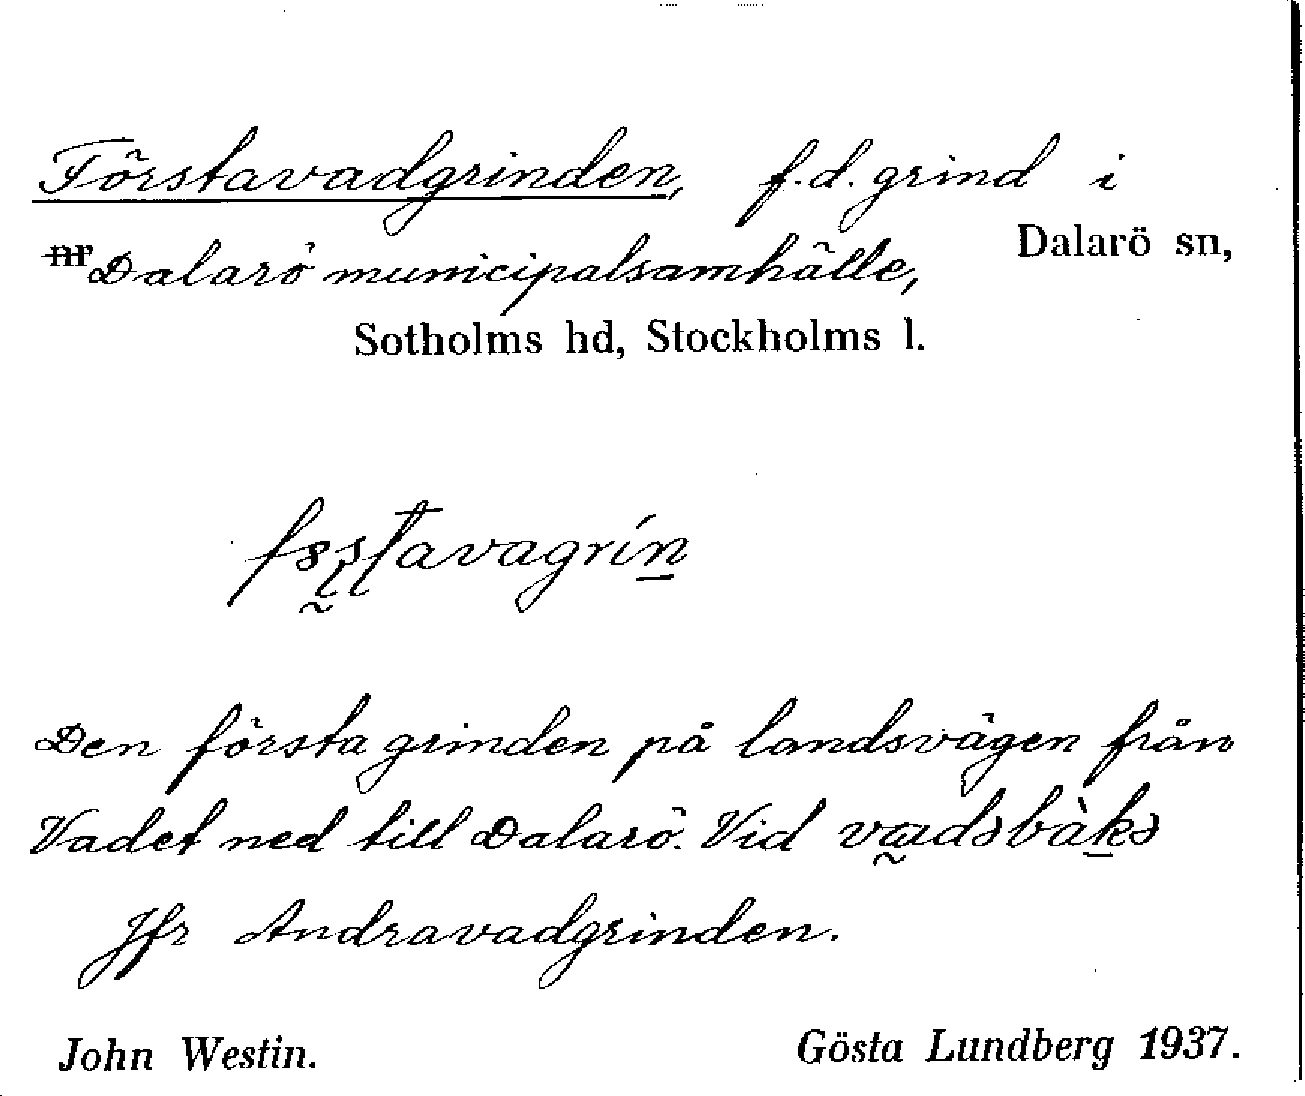 Förstavadgrinden, f.d. grind i
Dalarö municipalsamhälle, Dalarö sn,
Sotholms hd, Stockholms l.
Den första grinden på landsvägen från
Vadet ned till Dalarö. Vid
Jfr Andravadgrinden.
John Westin. Gösta Lundberg 1937.